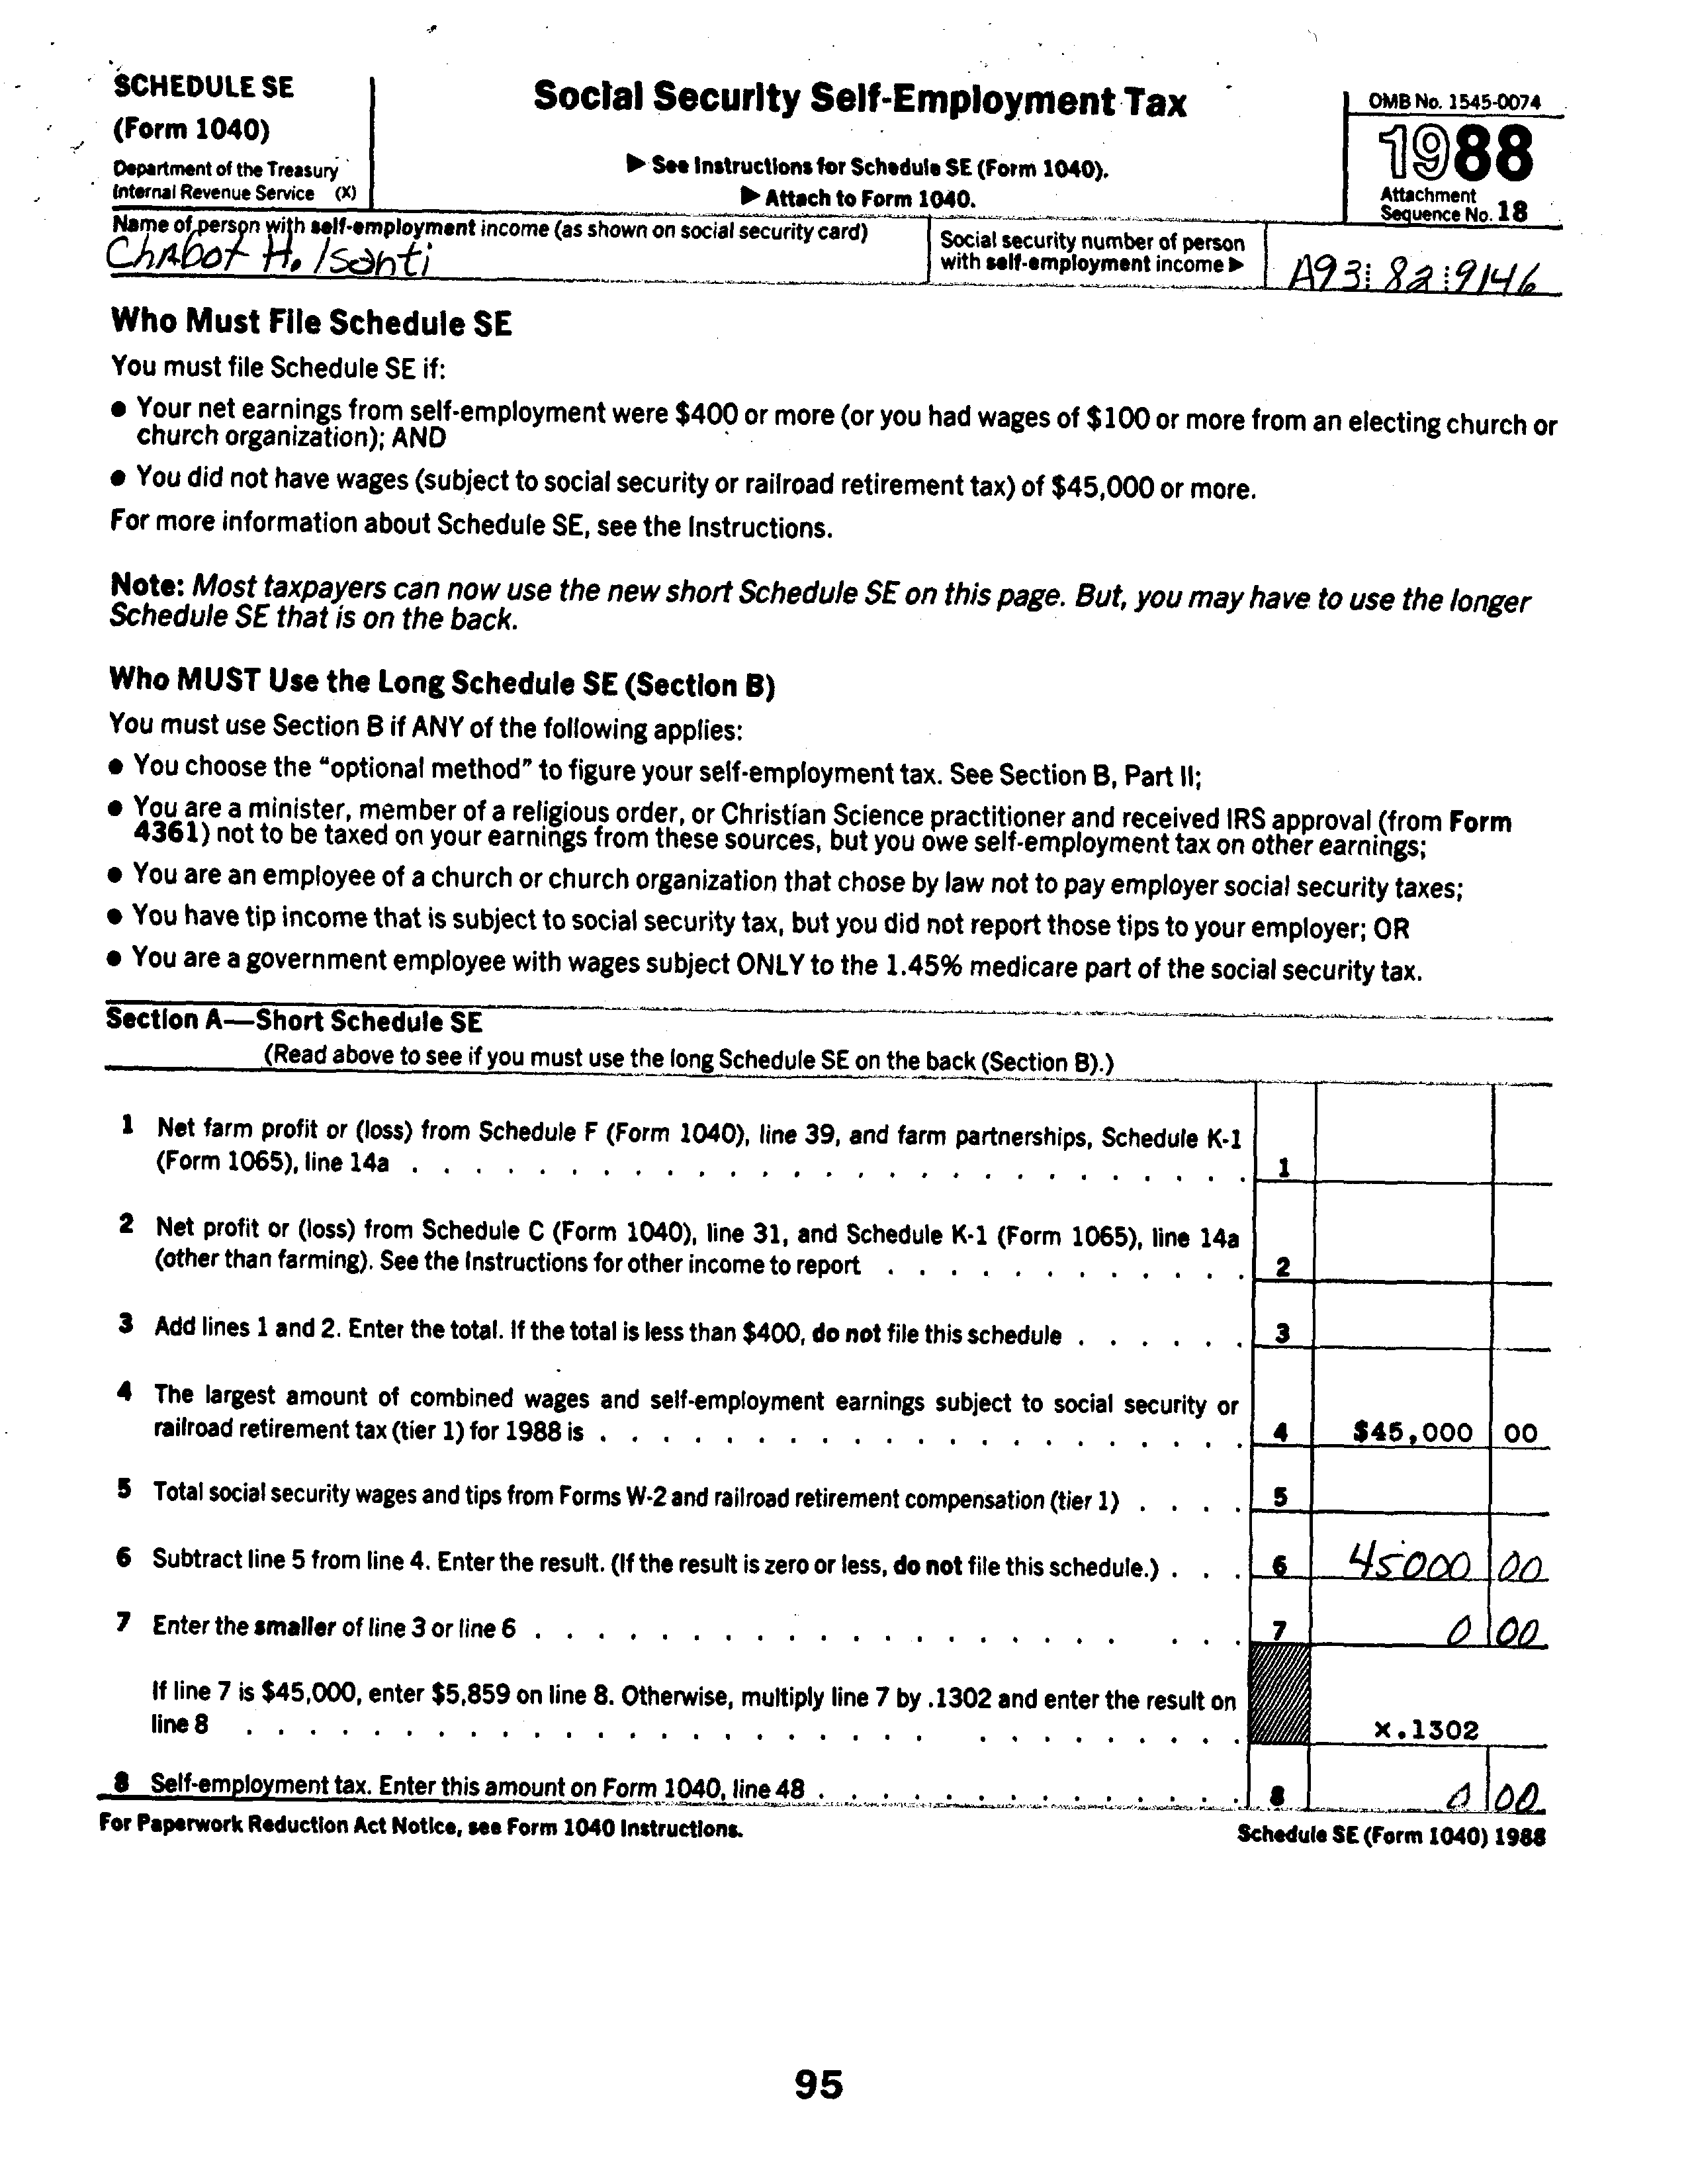 SCHEDULE SE
(Form 1040)
Department of the Treasury
Internal Revenue Service (X)
Social Security Self-Employment Tax
▶ See Instructions for Schedule SE (Form 1040).
▶ Attach to Form 1040.
OMB No. 1545-0074
1988
Attachment
Sequence No. 18
Name of person with self-employment income (as shown on social security card)
Chabot H. Isanti
Social security number of person
with self-employment income ▶
A93 82 9146
Who Must File Schedule SE
You must file Schedule SE if:
● Your net earnings from self-employment were $400 or more (or you had wages of $100 or more from an electing church or
church organization); AND
● You did not have wages (subject to social security or railroad retirement tax) of $45,000 or more.
For more information about Schedule SE, see the Instructions.
Note: Most taxpayers can now use the new short Schedule SE on this page. But, you may have to use the longer
Schedule SE that is on the back.
Who MUST Use the Long Schedule SE (Section B)
You must use Section B if ANY of the following applies:
● You choose the "optional method" to figure your self-employment tax. See Section B, Part II;
● You are a minister, member of a religious order, or Christian Science practitioner and received IRS approval (from Form
4361) not to be taxed on your earnings from these sources, but you owe self-employment tax on other earnings;
● You are an employee of a church or church organization that chose by law not to pay employer social security taxes;
● You have tip income that is subject to social security tax, but you did not report those tips to your employer; OR
● You are a government employee with wages subject ONLY to the 1.45% medicare part of the social security tax.
Section A—Short Schedule SE
(Read above to see if you must use the long Schedule SE on the back (Section B).)
1 Net farm profit or (loss) from Schedule F (Form 1040), line 39, and farm partnerships, Schedule K-1
(Form 1065), line 14a . . . . . . . . . . . . . . . . . . . . . . . . . . . 1
2 Net profit or (loss) from Schedule C (Form 1040), line 31, and Schedule K-1 (Form 1065), line 14a
(other than farming). See the Instructions for other income to report . . . . . . . . . . . . 2
3 Add lines 1 and 2. Enter the total. If the total is less than $400, do not file this schedule . . . . . . 3
4 The largest amount of combined wages and self-employment earnings subject to social security or
railroad retirement tax (tier 1) for 1988 is . . . . . . . . . . . . . . . . . . . . . 4 $45,000 00
5 Total social security wages and tips from Forms W-2 and railroad retirement compensation (tier 1) . . . . 5
6 Subtract line 5 from line 4. Enter the result. (If the result is zero or less, do not file this schedule.) . . . 6 45000 00
7 Enter the smaller of line 3 or line 6 . . . . . . . . . . . . . . . . . . . . . . 7 0 00
If line 7 is $45,000, enter $5,859 on line 8. Otherwise, multiply line 7 by .1302 and enter the result on
line 8 . . . . . . . . . . . . . . . . . . . . . . . . . . . . . . x.1302
8 Self-employment tax. Enter this amount on Form 1040, line 48 . . . . . . . . . . . . . . 8 0 00
For Paperwork Reduction Act Notice, see Form 1040 Instructions.
Schedule SE (Form 1040) 1988
95